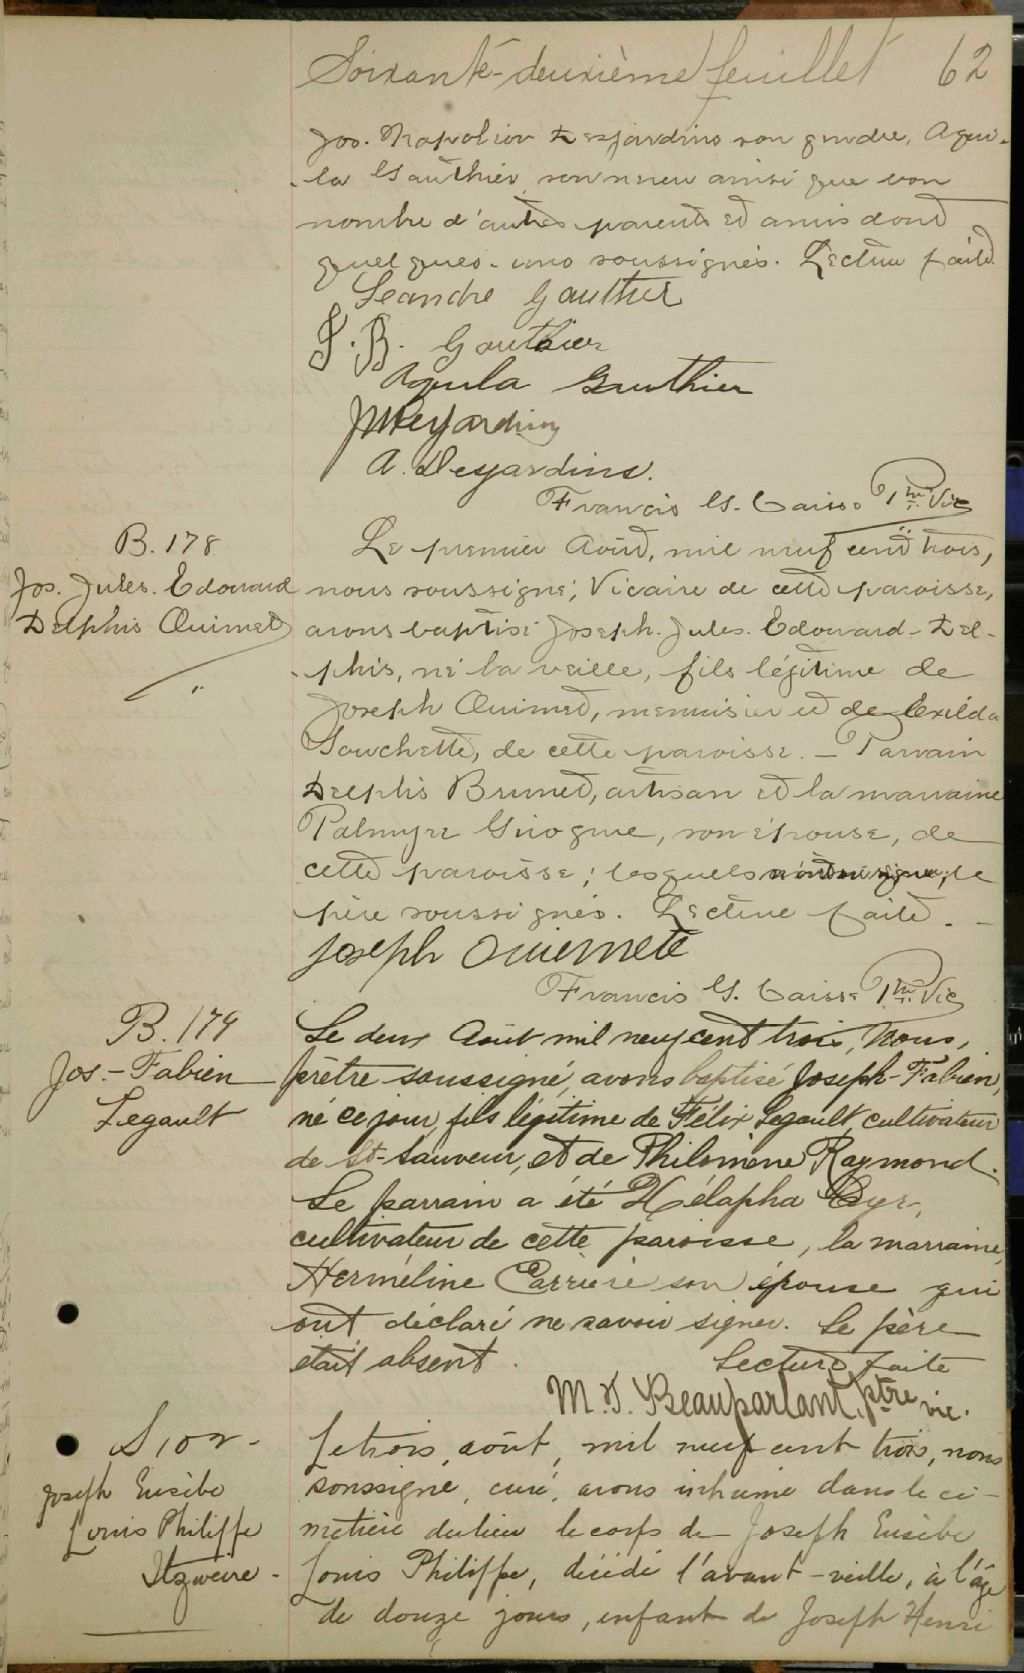 Soixante-deuxième feuillet 62
Jos. Napoléon Desjardins son gendre, Aqui-
la Gauthier son neveu ainsi que bon
nombre d'autres parents et amis dont
quelques-uns soussignés. Lecture faite.
Leandre Gauthier
J. B. Gauthier
Aquila Gauthier
JN Desjardins
A. Desjardins.
Francis G. Caisse Ptre Vic
B. 178
Jos. Jules. Edouard
Delphis Ouimet
Le premier Août, mil neuf cent trois,
nous soussigné, Vicaire de cette paroisse,
avons baptisé Joseph. Jules. Edouard-Del-
phis, né la veille, fils légitime de
Joseph Ouimet, menuisier et de Exilda
Touchette, de cette paroisse. — Parrain
Delphis Brunet, artisan et la marraine
Palmyre, son épouse, de
cette paroisse; lesquels le
père soussignés. Lecture faite. —
Joseph Ouiemete
Francis G. Caisse Ptre Vic
B. 179
Jos.-Fabien
Legault
Le deux Août mil neuf cent trois, Nous,
prêtre soussigné, avons baptisé Joseph-Fabien,
né ce jour, fils légitime de Félix Legault, cultivateur
de St-Sauveur, et de Philomène Raymond.
Le parrain a été Mélapha Cyr,
cultivateur de cette paroisse, la marraine,
Herméline Carrière son épouse qui
ont déclaré ne savoir signer. Le père
était absent. Lecture faite
M. J. Beauparlant, ptre vic.
S 102-
Joseph Eusèbe
Louis Philippe
Itzweire-
Le trois, août, mil neuf cent trois, nous
soussigné, curé, avons inhumé dans le ci-
metière du lieu le corps de Joseph Eusèbe
Louis Philippe, décédé l'avant-veille, à l'âge
de douze jours, enfant de Joseph Henri